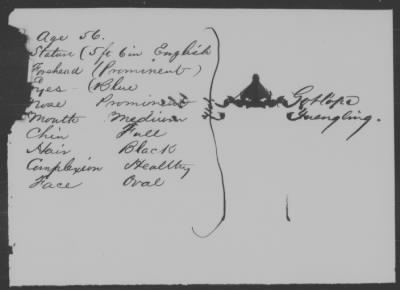 Age 56.
Stature (5 ft 6 in English
Forehead (Prominent)
Eyes - (Blue
Nose Prominent
Mouth Medium
Chin Full
Hair Black
Complexion Healthy
Face Oval
Guengling.